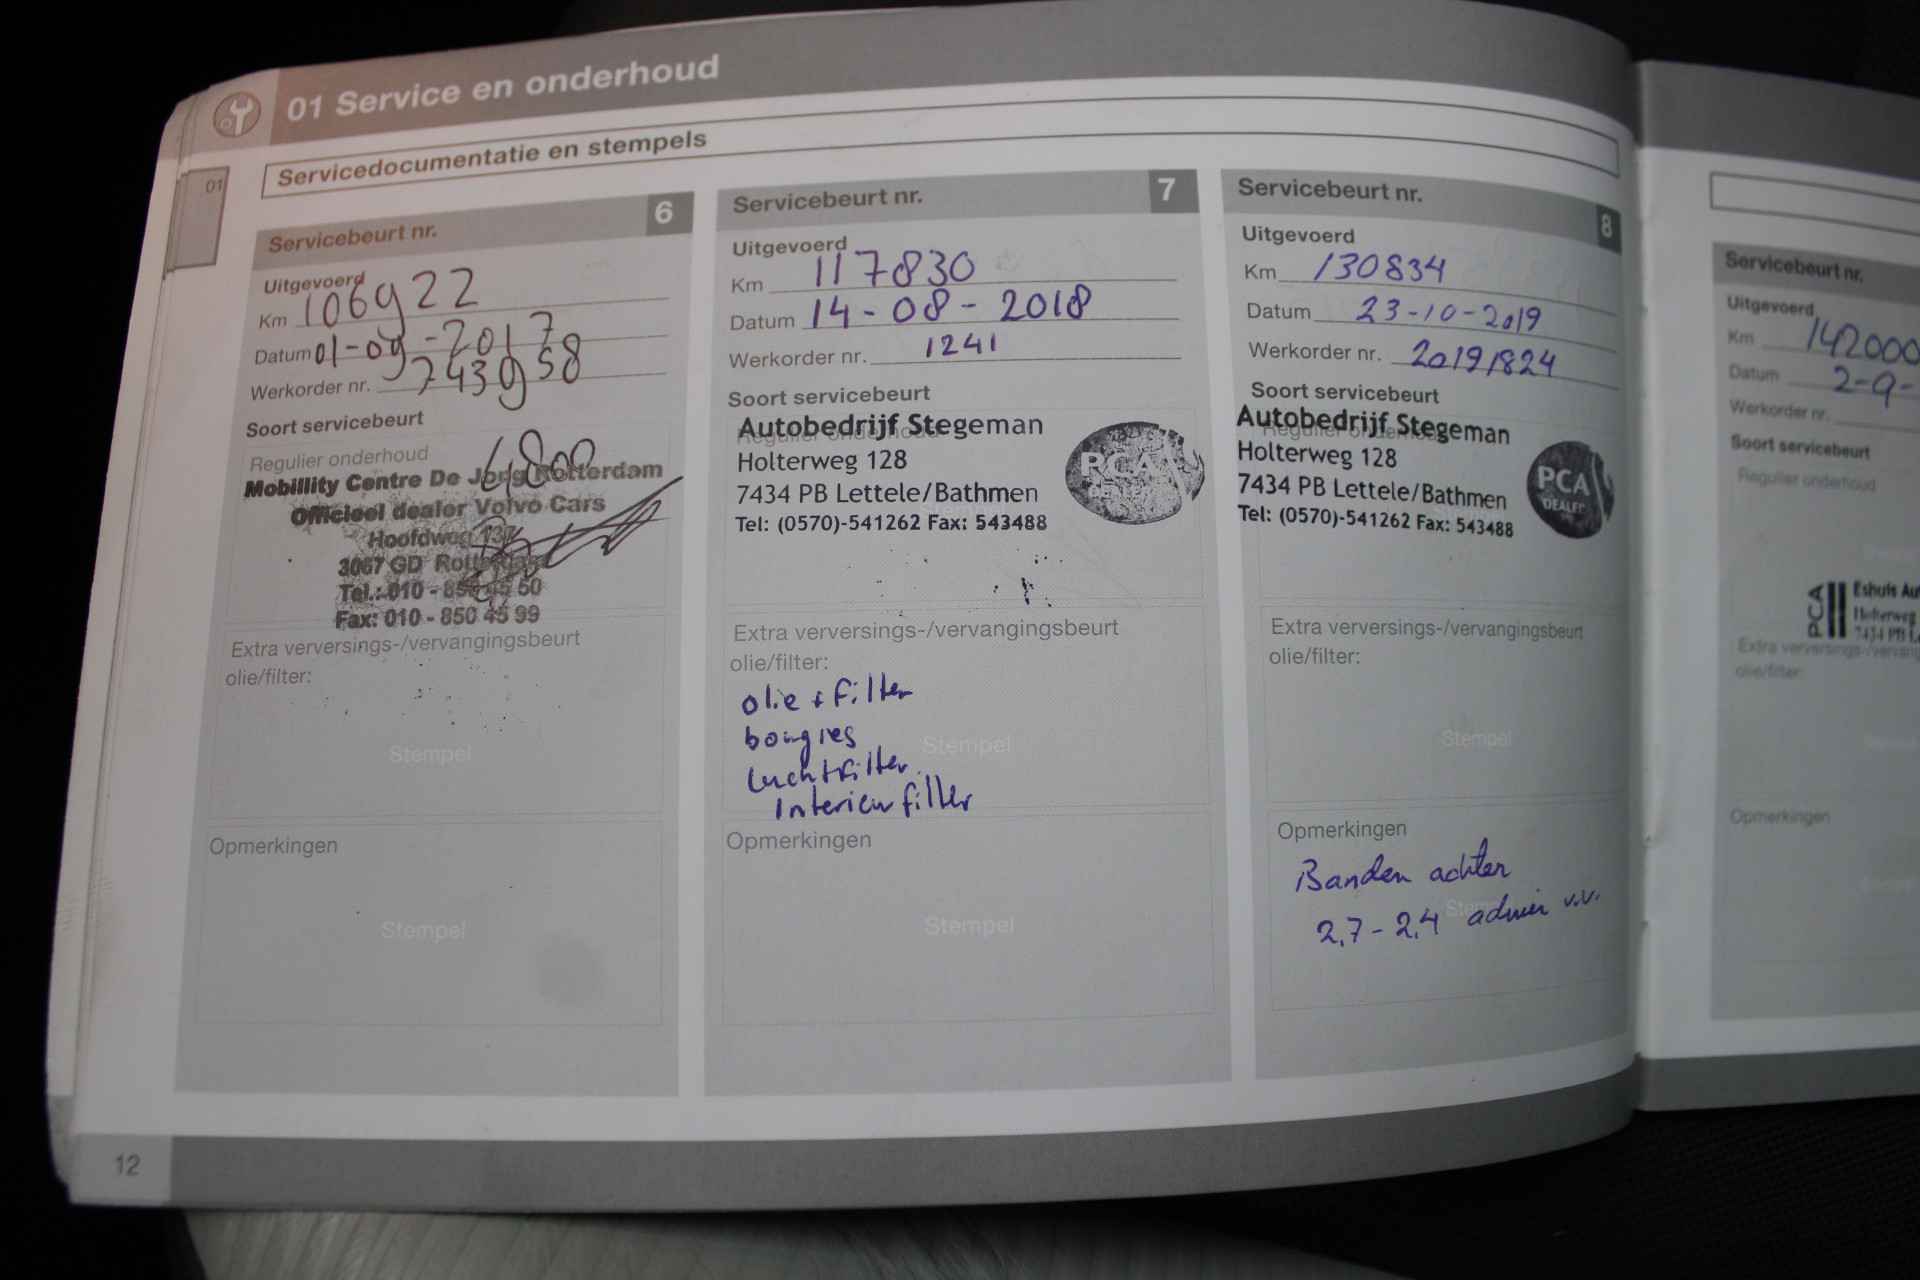 01 Service en onderhoud
Servicedocumentatie en stempels
01
Servicebeurt nr. 6
Uitgevoerd
Km 106922
Datum 01-09-2017
Werkorder nr. 743958
Soort servicebeurt
Regulier onderhoud
Mobillity Centre De Jong Rotterdam
Officieel dealer Volvo Cars
Hoofdweg 137
3067 GD Rotterdam
Tel.: 010 - 850 45 50
Fax: 010 - 850 45 99
Extra verversings-/vervangingsbeurt
olie/filter:
Stempel
Opmerkingen
Stempel
Servicebeurt nr. 7
Uitgevoerd
Km 117830
Datum 14-08-2018
Werkorder nr. 1241
Soort servicebeurt
Regulier onderhoud
Autobedrijf Stegeman
Holterweg 128
7434 PB Lettele/Bathmen
Tel: (0570)-541262 Fax: 543488
PCA
DEALER
Stempel
Extra verversings-/vervangingsbeurt
olie/filter:
olie + filter
bougies
luchtfilter
Interieur filter
Stempel
Opmerkingen
Stempel
Servicebeurt nr. 8
Uitgevoerd
Km 130834
Datum 23-10-2019
Werkorder nr. 20191824
Soort servicebeurt
Regulier onderhoud
Autobedrijf Stegeman
Holterweg 128
7434 PB Lettele/Bathmen
Tel: (0570)-541262 Fax: 543488
PCA
DEALER
Extra verversings-/vervangingsbeurt
olie/filter:
Stempel
Opmerkingen
Banden achter
2,7 - 2,4 advies v.v.
Stempel
12
Servicebeurt nr.
Uitgevoerd
Km 142000
Datum 2-9-
Werkorder nr.
Soort servicebeurt
Regulier onderhoud
PCA
Eshuis Au
Holterweg
7434 PB L
Extra verversings-/vervang
olie/filter:
Opmerkingen